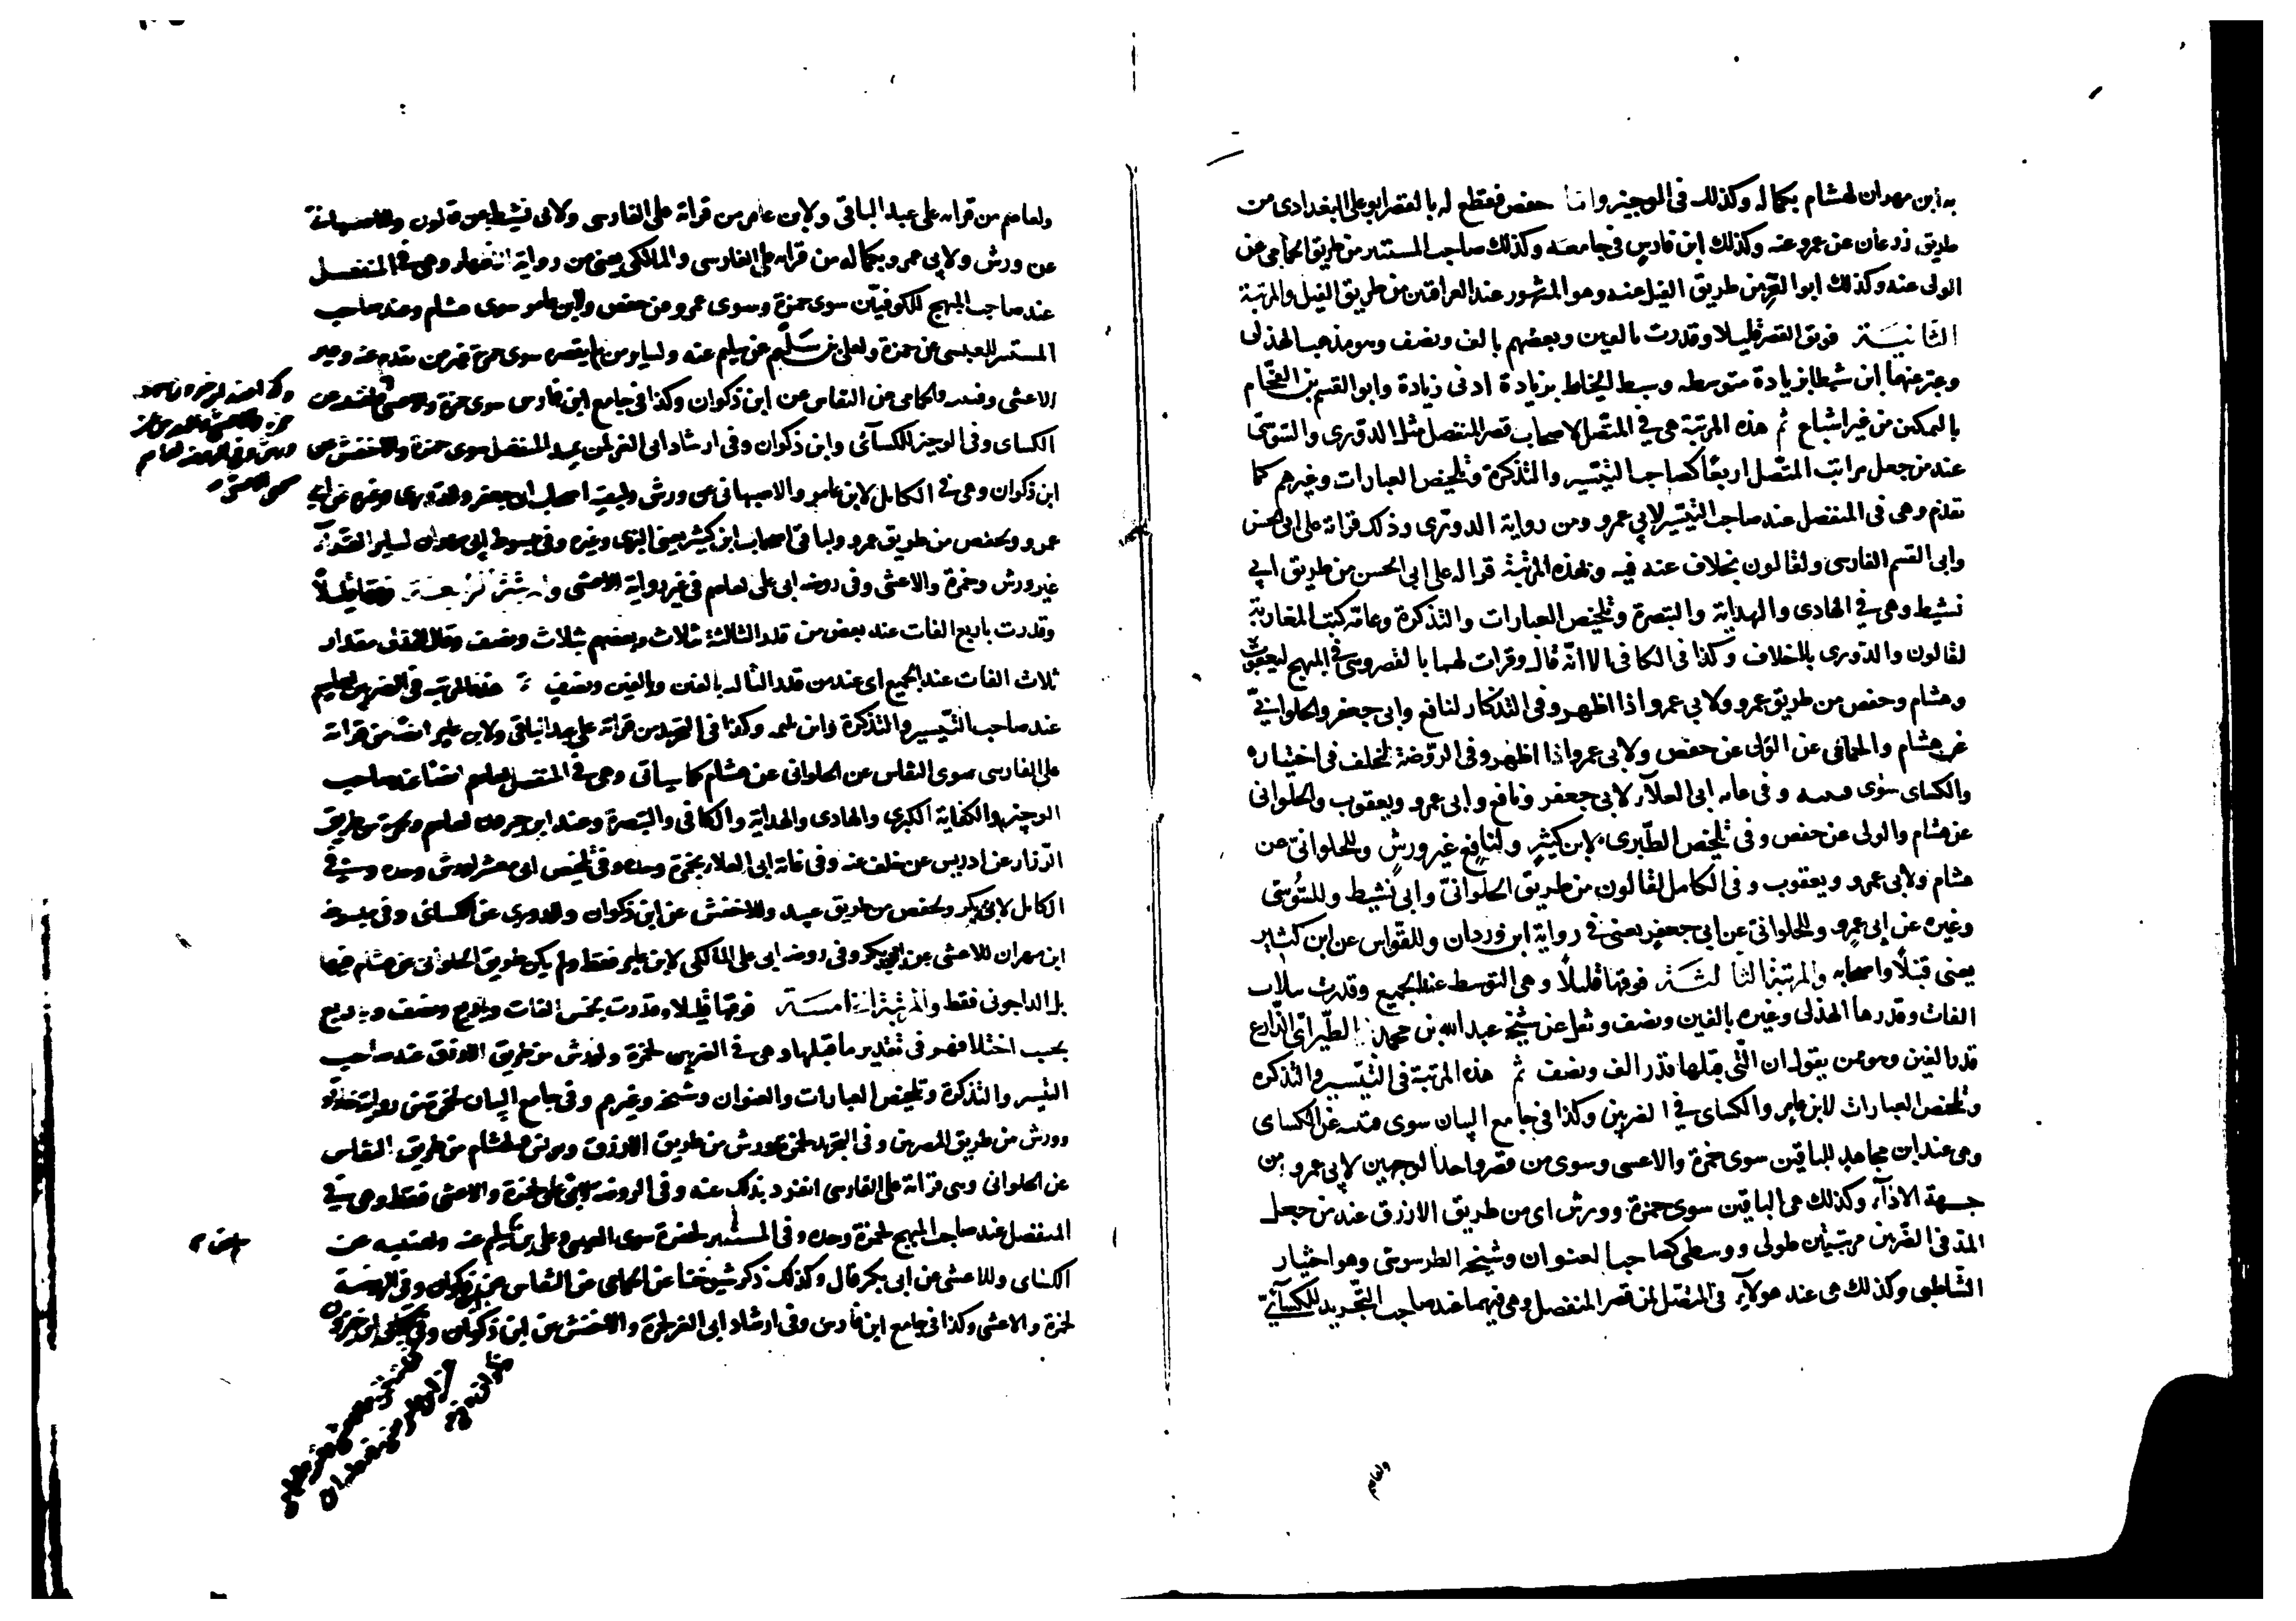 به ابن مهران لهشام بكماله وكذلك في الموجيز واما حفص فقطع له بالقصر ابو علي البغدادي من
طريق زرعان عن عمرو عنه وكذلك ابن فارس في جامعه وكذلك صاحب المستنير من طريق الحمامي عن
الولي عنه وكذلك ابو العز من طريق الفيل عنه وهو المشهور عند العراقيين من طريق الفيل والمرتبة
الثانية فويق القصر قليلا وقدرت بالفين وبعضهم بالف ونصف وهو مذهب الهذلي
وعبر عنها ابن شيطا بزيادة متوسطه وسبط الخياط بزيادة ادنى زيادة وابو القسم بن الفحام
بالتمكين من غير اشباع ثم هذه المرتبة هي في المتصل لاصحاب قصر المنفصل مثل الدوري والسوسي
عند من جعل مراتب المتصل اربعا كصاحب التيسير والتذكرة وتلخيص العبارات وغيرهم كما
تقدم وهي في المنفصل عند صاحب التيسير لابي عمرو ومن رواية الدوري وذلك قراته على ابي الحسن
وابي القسم الفارسي ولقالون بخلاف عنه فيه وبهذه المرتبة قرا له على ابي الحسن من طريق ابي
نشيط وهي في الهادي والهداية والتبصرة وتلخيص العبارات والتذكرة وعامة كتب المغاربة
لقالون والدوري بلا خلاف وكذا في الكافي الا انه قال وقرات لهما بالقصر وهي في المبهج ليعقوب
وهشام وحفص من طريق عمرو ولابي عمرو اذا اظهر وفي التذكار لنافع وابي جعفر والحلواني
عن هشام والحمامي عن الولي عن حفص ولابي عمرو اذا اظهر وفي الروضة لخلف في اختياره
والكساي سوى قتيبه وفي غايه ابي العلاء لابي جعفر ونافع وابي عمرو ويعقوب والحلواني
عن هشام والولي عن حفص وفي تلخيص الطبري لابن كثير ولنافع غير ورش وللحلواني عن
هشام ولابي عمرو ويعقوب وفي الكامل لقالون من طريق الحلواني وابي نشيط وللسوسي
وغيره عن ابي عمرو وللحلواني عن ابي جعفر يعني في رواية ابن وردان وللقواس عن ابن كثير
يعني قنبلا واصحابه والمرتبة الثالثة فوقها قليلا وهي التوسط عند الجميع وقدرت بثلاث
الفات وقدرها الهذلي وغيره بالفين ونصف ونقل عن شيخه عبد الله بن محمد الطيراي الذارع
قدر الفين وهو من يقول ان التي قبلها قدر الف ونصف ثم هذه المرتبة في التيسير والتذكره
وتلخيص العبارات لابن عامر والكساي في الضربين وكذا في جامع البيان سوى قتيبه عن الكساي
وهي عند ابن مجاهد للباقين سوى حمزة والاعشى وسوى من قصر واحد الوجهين لابي عمرو من
جهة الاداء وكذلك هي الباقين سوى حمزة وورش اي من طريق الازرق عند من جعل
المد في الضربين مرتبتين طولى ووسطى كصاحب العنوان وشيخه الطرسوسي وهو اختيار
الشاطبي وكذلك هي عند هولاء في المتصل لمن قصر المنفصل وهي فيهما عند صاحب التجريد للكسائي
ولعاصم
ولعاصم من قراته على عبد الباقي ولابن عامر من قراته على الفارسي ولابي نشيط عن قالون وللاصبهاني
عن ورش ولابي عمرو بكماله من قراته على الفارسي والمالكي يعني من رواية الاظهار وهي في المنفصل
عند صاحب المبهج للكوفيين سوى حمزة وسوى عمرو عن حفص ولابن عامر سوى هشام وعند صاحب
المستنير للعبسي عن حمزة ولعلي بن سلم عن سليم عنه ولسائر من لم يقصره سوى حمزة غير من تقدم عنه وغير
الاعشى وقتيبه والحمامي عن النقاش عن ابن ذكوان وكذا في جامع ابن فارس سوى حمزة والاعشى
الكساي وفي الوجيز للكسائي وابن ذكوان وفي ارشاد ابي العز لمن يمد المنفصل سوى حمزة والاخفش عن
ابن ذكوان وهي في الكامل لابن عامر والاصبهاني عن ورش ولبقية اصحاب ابي جعفر والدوري وغيره عن ابي
عمرو ولحفص من طريق عمرو ولباقي اصحاب ابن كثير يعني البزي وغيره وفي مبسوط ابن مهران لسائر القراء
غير ورش وحمزة والاعشى وفي روضه ابي علي لعاصم في غير رواية الاعشى فوقها قليلا
وقدرت باربع الفات عند بعض من قدر الثالثة بثلاث وبعضهم بثلاث ونصف وقال الهذلي مقدار
ثلاث الفات عند الجميع اي عند من قدر الثالثة بالفين وبالفين ونصف هذه المرتبة في الضربين لعاصم
عند صاحب التيسير والتذكرة وابن بليمه وكذا في التجريد من قراته على عبد الباقي ولابن عامر ايضا من قراته
على الفارسي سوى النقاش عن الحلواني عن هشام كما سياتي وهي في المنفصل لعاصم ايضا عند صاحب
الوجيز والكفاية الكبرى والهادي والهداية والكافي والتبصرة وعند ابن خيرون لعاصم من طريق
الرزاز عن ادريس عن خلف عنه وفي غاية ابي العلاء لحمزة وحده وفي تلخيص ابي معشر لورش وحده وهي في
الكامل لابي بكر ولحفص من طريق عبيد وللاخفش عن ابن ذكوان والدوري عن الكسائي وفي مبسوط
ابن مهران للاعشى عن ابي بكر وفي روضه ابي علي المالكي لابن عامر فقط ولم يكن طريق الحلواني عن هشام فيها
بل الداجوني فقط والمرتبة الخامسة فوقها قليلا وقدرت بخمس الفات وباربع ونصف وباربع
بحسب اختلافهم في تقدير ما قبلها وهي في الضربين لحمزة ولورش من طريق الازرق عند صاحب
التيسر والتذكرة وتلخيص العبارات والعنوان وشيخه وغيرهم وفي جامع البيان لحمزة من رواية خلاد
وورش من طريق المصريين وفي التجريد لحمزة وورش من طريق الازرق ويونس ولهشام من طريق النقاش
عن الحلواني وهي قراته على الفارسي انفرد بذلك عنه وفي الروضه لحمزة والاعشى فقط وهي في
المنفصل عند صاحب المبهج لحمزة وحده وفي المستنير لحمزة سوى العبسي وعلي بن سلم عنه ولقتيبه عن
الكساي وللاعشى عن ابي بكر قال وكذلك ذكر شيوخنا عن الحمامي عن النقاش عن ابن ذكوان وفي الروضة
لحمزة والاعشى وكذا في جامع ابن فارس وفي ارشاد ابي العز لحمزة والاخفش عن ابن ذكوان وفي